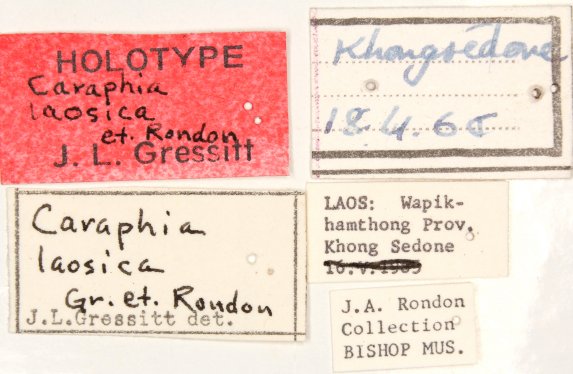 HOLOTYPE
Caraphia
laosica
et. Rondon
J. L. Gressitt
Khongsédone
18.4.65
Caraphia
laosica
Gr. et. Rondon
J.L.Gressitt det.
LAOS: Wapik-
hamthong Prov.
Khong Sedone
16.V.1965
J.A. Rondon
Collection
BISHOP MUS.